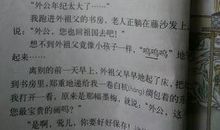 “外公年纪太大了……”
我跑进外祖父的书房，老人正躺在藤沙发上
说：“外公，您也回祖国去吧！”
想不到外祖父竟像小孩子一样，“呜呜呜”地
起来……
离别的前一天早上，外祖父早早地起了床，把
到书房里，郑重地递给我一卷白杭绸包着的
我打开一看，原来是那幅墨梅，就说：“外公，这
您最宝贵的画吗？”
“是啊，莺儿，你要好好保存！